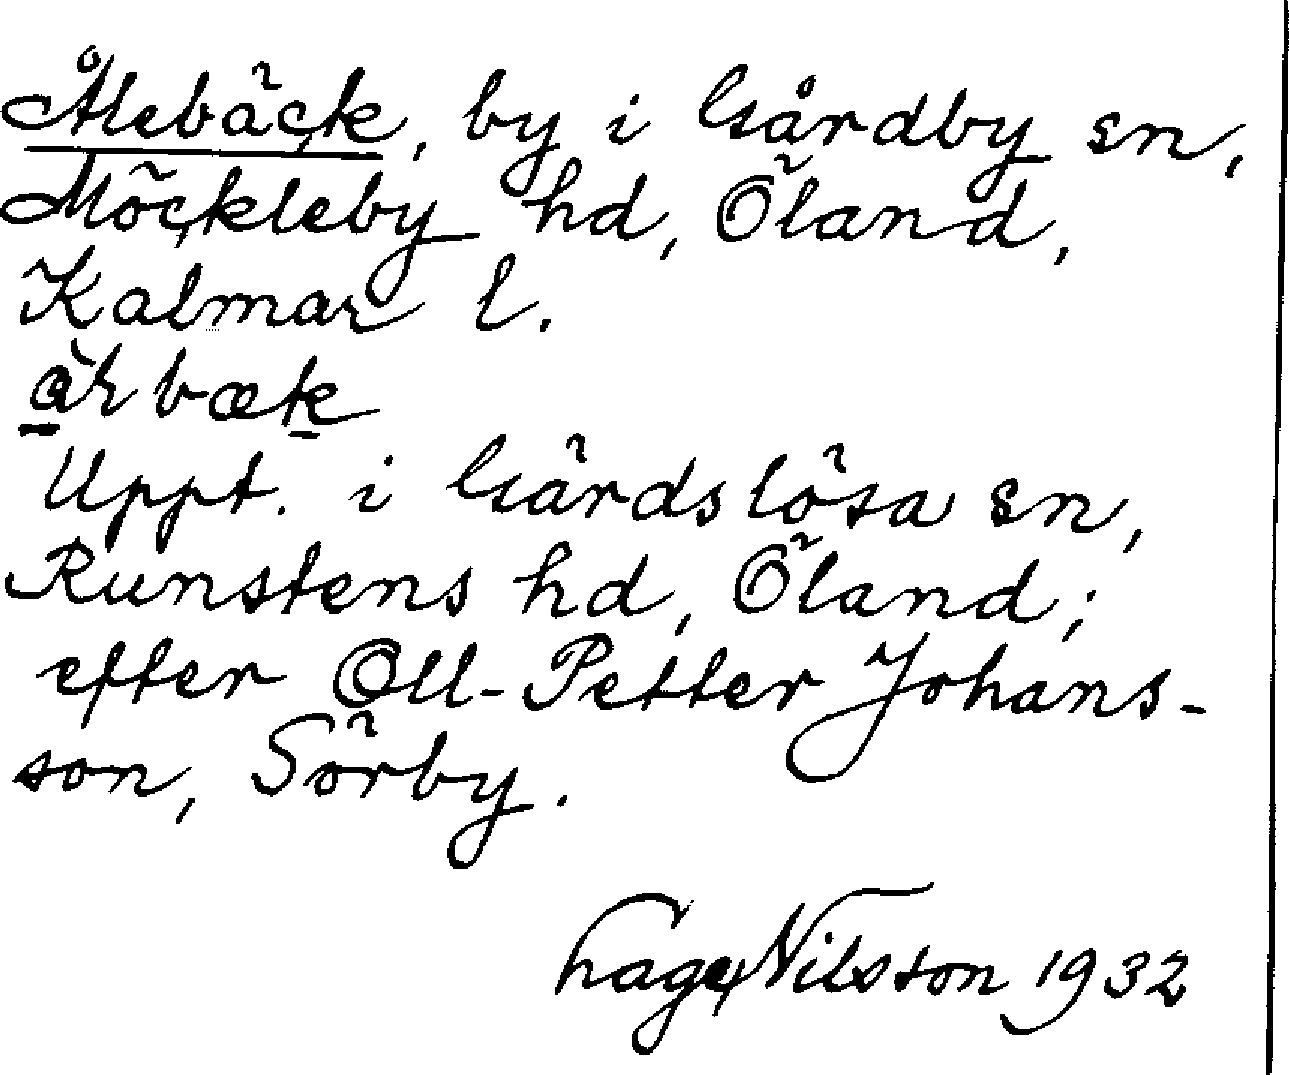 Ålebäck, by i Gårdby sn,
Möckleby hd, Öland,
Kalmar l.
bæk
Uppt. i Gärdslösa sn,
Runstens hd, Öland;
efter Oll-Petter Johans-
son, Sörby.
Hage Nilsson 1932